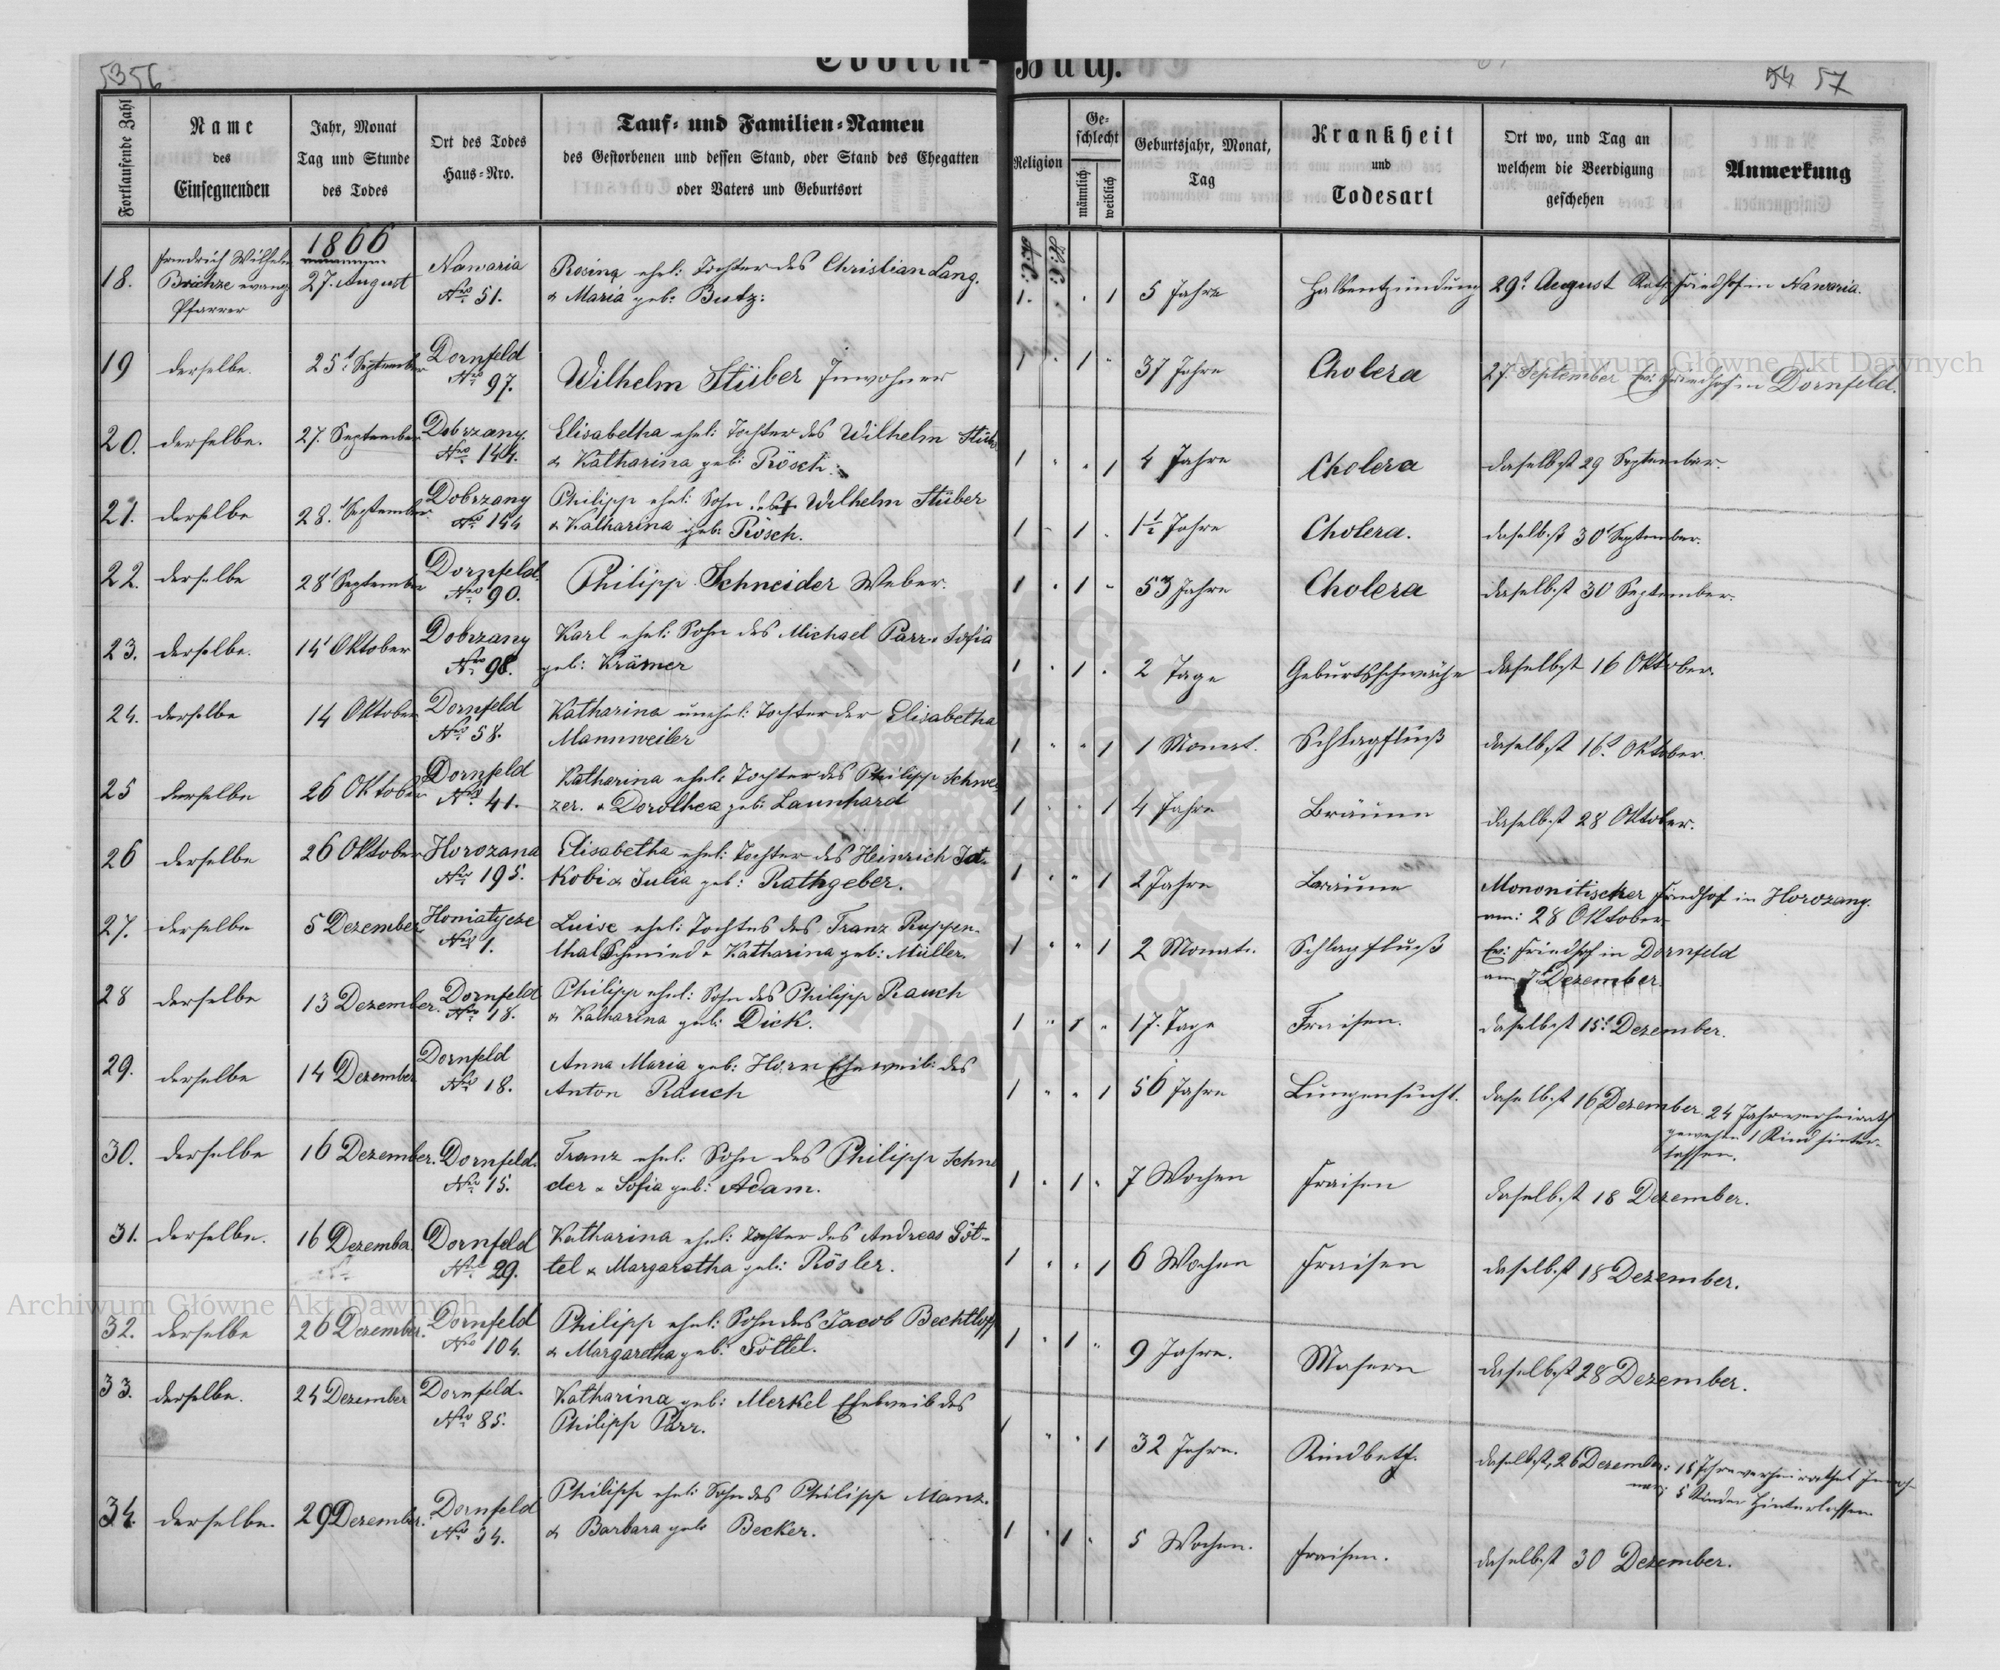 5356
54 57
Todten-Buch.
Fortlaufende Zahl
Name
des
Einsegnenden
Jahr, Monat
Tag und Stunde
des Todes
Ort des Todes
Haus-Nro.
Tauf- und Familien-Namen
des Gestorbenen und dessen Stand, oder Stand des Ehegatten
oder Vaters und Geburtsort
Religion
Ge-
schlecht
männlich
weiblich
Geburtsjahr, Monat,
Tag
Krankheit
und
Todesart
Ort wo, und Tag an
welchem die Beerdigung
geschehen
Anmerkung
1866
A.C. H.C.
18. Friedrich Wilhelm 27. August Nawaria Rosina ehel: Tochter des Christian Lang. 1. " . 1 5 Jahre Halsentzündung 29t August Kath Friedhof in Nawaria.
evang Nro 51. & Maria geb: Butz:
Pfarrer
19 derselbe. 25t September Dornfeld Wilhelm Stüber Inwohner 1 " 1 " 37 Jahre Cholera 27. September Ev: Friedhof in Dornfeld.
Nro 97.
20. derselbe. 27. September Dobrzany. Elisabetha ehel: Tochter des Wilhelm Stüber 1 " " 1 4 Jahre Cholera daselbst 29 September.
Nro 144. & Katharina geb: Rösch.
21. derselbe 28t September Dobrzany Philipp ehel: Sohn des Wilhelm Stüber 1 " 1 . 1½ Jahre Cholera. daselbst 30t September.
Nro 144 & Katharina geb: Rösch.
22. derselbe 28t September Dornfeld. Philipp Schneider Weber. 1 " 1 " 53 Jahre Cholera daselbst 30 September.
Nro 90.
23. derselbe. 14t Oktober Dobrzany Karl ehel: Sohn des Michael Parr & Sofia 1 " 1 " 2 Tage Geburtsschwäche daselbst 16 Oktober.
Nro 98. geb: Krämer
24. derselbe 14 Oktober Dornfeld Katharina unehel: Tochter der Elisabetha 1 " " 1 1 Monat. Schlagfluß daselbst 16t Oktober.
Nro 58. Mannweiler
25 derselbe 26 Oktober Dornfeld Katharina ehel: Tochter des Philipp Schwei 1 " " 1 4 Jahre Bräune daselbst 28 Oktober.
Nro 41. zer. & Dorothea geb: Launhard
26 derselbe 26 Oktober Horozana Elisabetha ehel: Tochter des Heinrich Ja- 1 " " 1 2 Jahre Bräune Mononitischer Friedhof in Horozany.
Nro 195. kobi & Julia geb: Rathgeber. am: 28 Oktober
27. derselbe 5 Dezember Honiatycze Luise ehel: Tochter des Franz Ruppen- 1 " " 1 2 Monate. Schlagfluß Ev: Friedhof in Dornfeld
Nro 1. thal Schmied & Katharina geb: Müller. am 7t Dezember.
28 derselbe 13 Dezember. Dornfeld Philipp ehel: Sohn des Philipp Rauch 1 " 1 " 17. Tage Fraisen. daselbst 15t Dezember.
Nro 18. & Katharina geb: Dick.
29. derselbe 14 Dezember Dornfeld Anna Maria geb: Horn Eheweib des 1 " " 1 56 Jahre Lungensucht. daselbst 16 Dezember. 24 Jahre verheirath
Nro 18. Anton Rauch gewesen 1 Kind hinter-
lassen.
30. derselbe 16 Dezember. Dornfeld. Franz ehel: Sohn des Philipp Schnei 1 " 1 " 7 Wochen Fraisen daselbst 18 Dezember.
Nro 15. der & Sofia geb: Adam.
31. derselbe. 16 Dezember. Dornfeld Katharina ehel: Tochter des Andreas Göt- 1 " " 1 6 Wochen Fraisen daselbst 18 Dezember.
Nro 29. tel & Margaretha geb: Rösler.
32. derselbe 26 Dezember. Dornfeld Philipp ehel: Sohn des Jacob Bechtloff 1 " 1 " 9 Jahre. Masern daselbst 28 Dezember.
Nro 104. & Margaretha geb: Göttel.
33. derselbe. 24 Dezember Dornfeld. Katharina geb: Merkel Eheweib des 1 " " 1 32 Jahre. Kindbett. daselbst, 26 Dezember: 18 Jahre verheirathet
Nro 85. Philipp Parr. 5 Kinder hinterlassen
34. derselbe. 29 Dezember. Dornfeld Philipp ehel: Sohn des Philipp Manz. 1 " 1 " 5 Wochen. Fraisen. daselbst 30 Dezember.
Nro 34. & Barbara geb: Becker.
Archiwum Główne Akt Dawnych
Archiwum Główne Akt Dawnych
ARCHIWUM GŁÓWNE AKT DAWNYCH